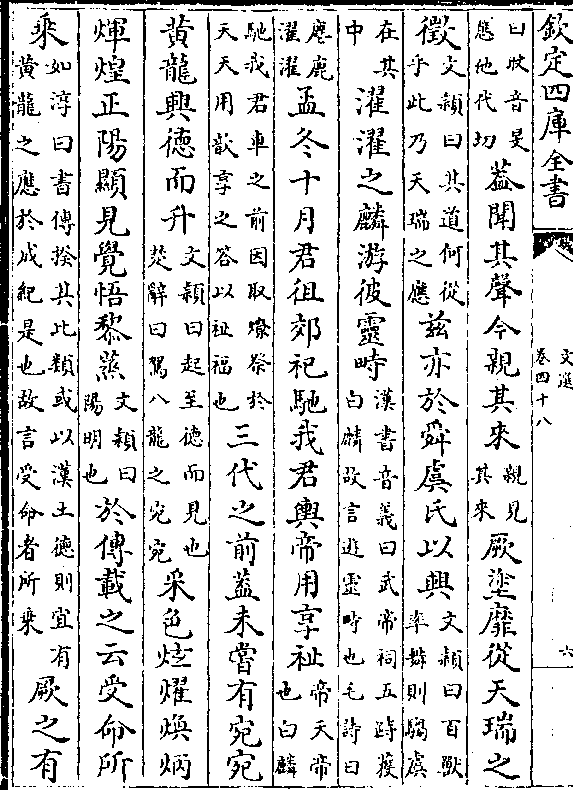 欽定四庫全書
文選
卷四十八
六
曰旼音旻
應他代切
蓋聞其聲今親其來
親見
其來
厥塗靡從天瑞之
徵
文穎曰其道何從
乎此乃天瑞之應
兹亦於舜虞氏以興
文穎曰百獸
率舞則騶虞
在其
中
濯濯之麟游彼靈畤
漢書音義曰武帝祠五畤獲
白麟故言遊靈畤也毛詩曰
麀鹿
濯濯
孟冬十月君徂郊祀馳我君輿帝用享祉
帝天帝
也白麟
馳我君車之前因取燎祭於
天天用歆享之答以祉福也
三代之前蓋未嘗有宛宛
黄龍興德而升
文穎曰起至德而見也
焚辭曰駕八龍之宛宛
采色炫燿煥炳
煇煌正陽顯見覺悟黎蒸
文穎曰
陽明也
於傳載之云受命所
乘
如淳曰書傳揆其比類或以漢土德則宜有
黄龍之應於成紀是也故言受命者所乘
厥之有